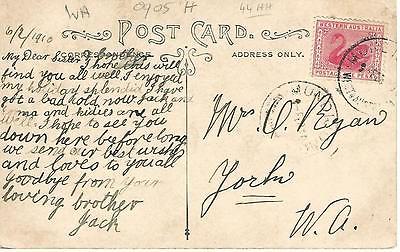 WA 0905 H 44HH
POST CARD.
WESTERN AUSTRALIA
POSTAGE ONE PENNY
6/2/1910
CORRESPONDENCE
ADDRESS ONLY.
My Dear Sister I hope this will
find you all well I enjoyed
my holiday splendid I have
got a bad hold now Jack and
ma and kidies are all
well I hope to see you
down here before long
we send our best wishes
and loves to you all
goodbye from your
loving brother
Jack
Mrs C. Ryan
York
W.A.